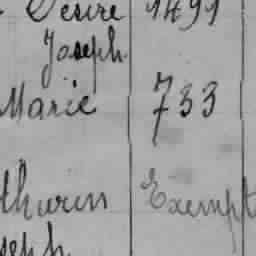 Desiré 1491
Joseph
Marie 733
thurin Exempt
seph